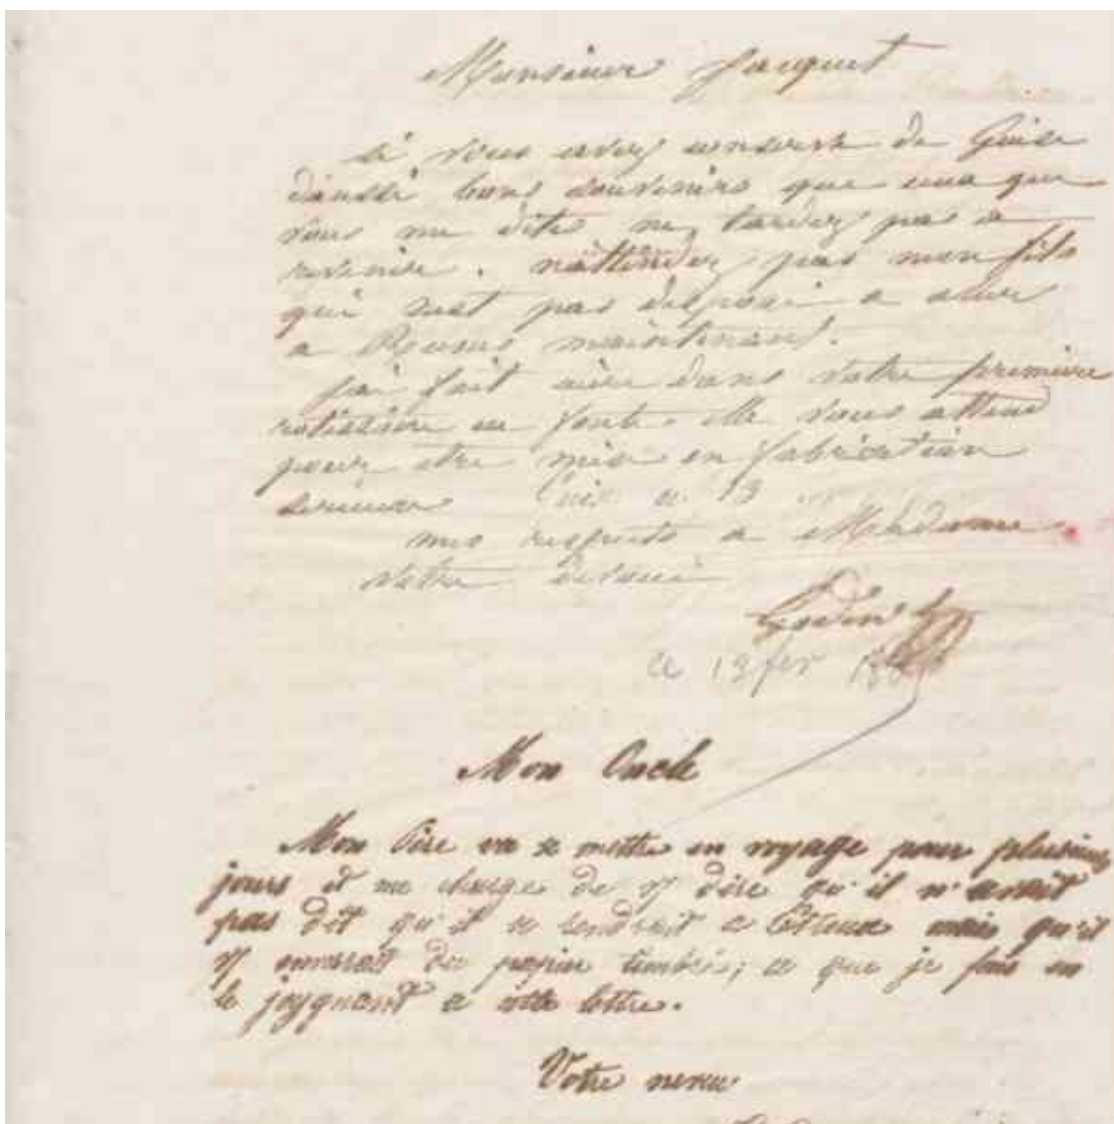 Monsieur Jacquet
si vous avez conservé de Guise
d'aussi bons souvenirs que ceux que
vous me dites ne tardez pas a
revenir. n'attendez pas mon fils
qui nest pas disposé a aller
a Reims maintenant.
jai fait dans votre première
rotissoire en fonte. elle vous attend
pour etre mise en fabrication
a 13
mes respects a Madame
votre dévoué
Godin
ce 13 fev
Mon Oncle
Mon Père va se mettre en voyage pour plusieurs
jours et me charge de vs dire qu'il n'avait
pas dit qu'il se rendrait a mais qu'il
vs enverrait du papier timbré; ce que je fais en
le joygnant a cette lettre.
Votre neveu